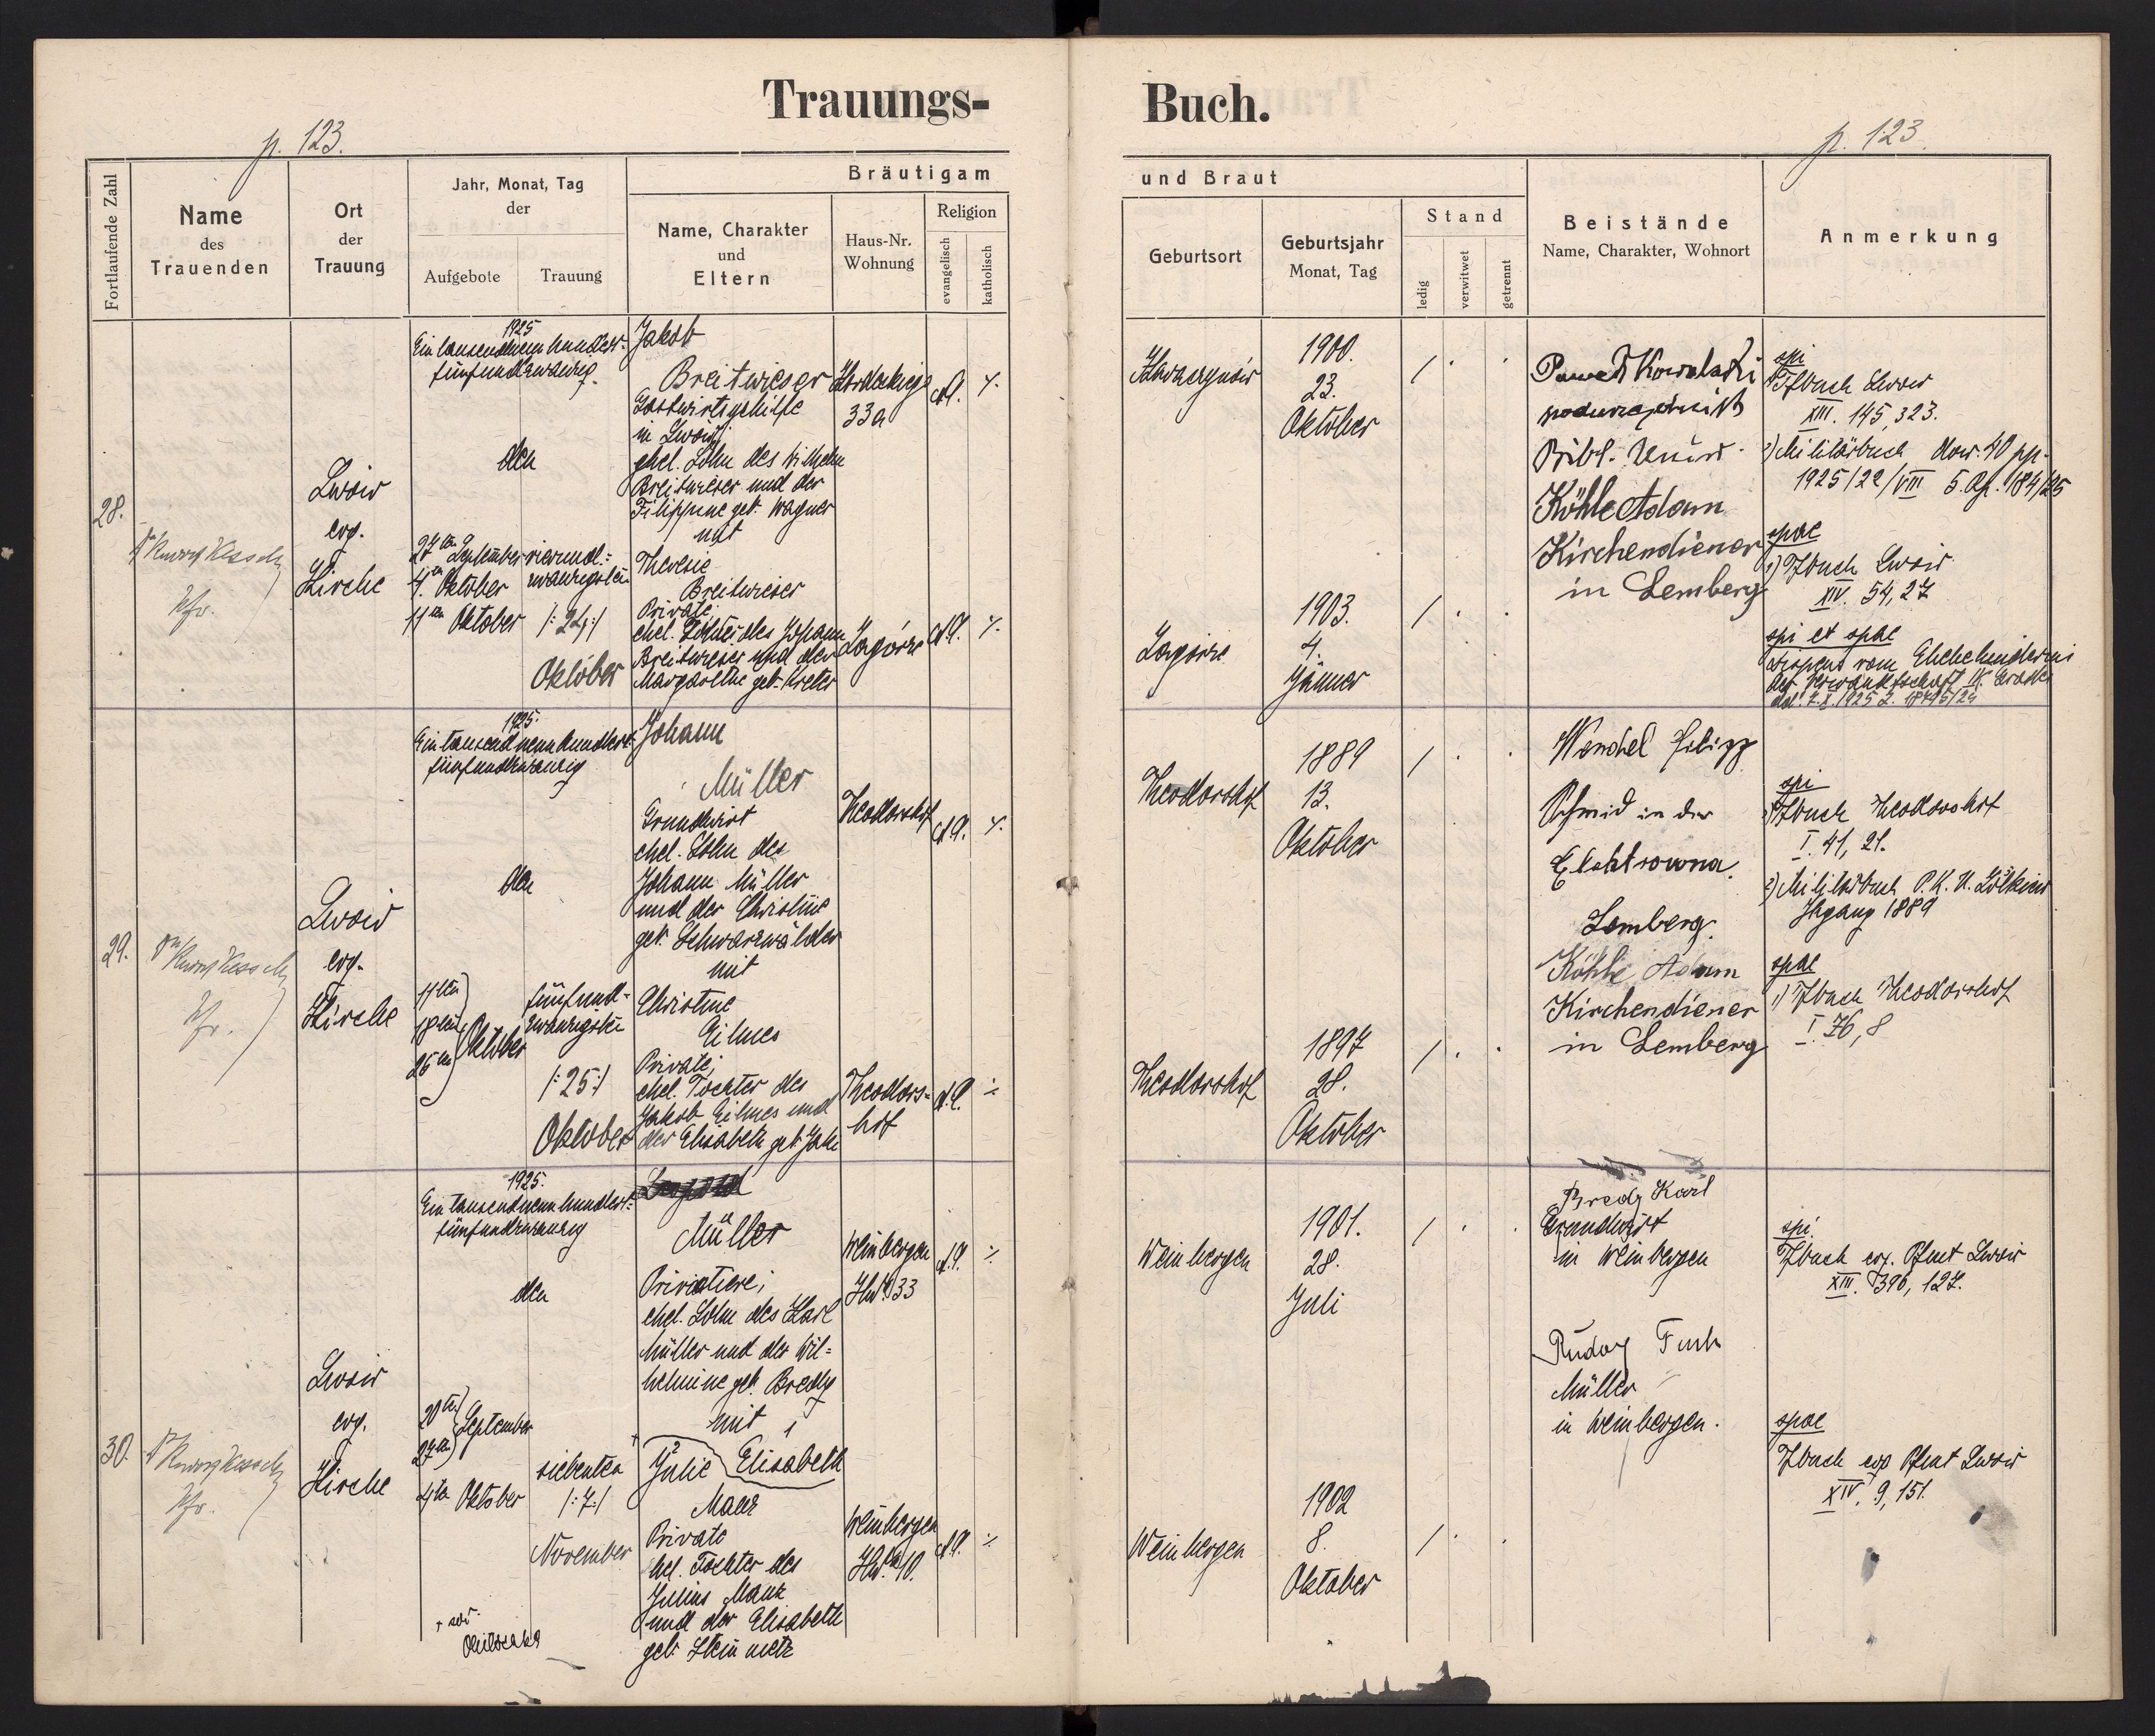 Trauungs-
Buch.
p. 123.
p. 123.
Fortlaufende Zahl
Name
des
Trauenden
Ort
der
Trauung
Jahr, Monat, Tag
der
Aufgebote
Trauung
Bräutigam
Name, Charakter
und
Eltern
Haus-Nr.
Wohnung
Religion
evangelisch
katholisch
und Braut
Geburtsort
Geburtsjahr
Monat, Tag
Stand
ledig
verwitwet
getrennt
Beistände
Name, Charakter, Wohnort
Anmerkung
28.
Pfr.
Lwów
evg.
Kirche
1925
Ein tausendneunhundert-
fünfundzwanzig.
den
27ten September
4ten Oktober
11ten Oktober
vierund-
zwanzigsten
/:24:/
Oktober
Jakob
Breitwieser
Gastwirtsgehilfe
in Lwów;
ehel. Sohn des Wilhelm
Breitwieser und der
Filippine geb. Wagner
mit
Therese
Breitwieser
Private;
ehel. Tochter des Johann
Breitwieser und der
Margarethe geb. Kreter
33a
A.A. ./.
Zagórze
A.A. ./.
1900.
23.
Oktober
/ . .
Zagórze
1903.
4.
Jänner
/ . .
Paweł Kowalski
Köhle Adam
Kirchendiener
in Lemberg
spi
1) Tfbuch Lwów
XIII. 145, 323.
2) Militärbuch
1925/22/VIII
spae
1) Tfbuch Lwów
XIV. 54, 27
spi et spae
Dispens vom Ehehindernis
der Verwandtschaft
29.
Pfr.
Lwów
evg.
Kirche
1925.
Ein tausendneunhundert-
fünfundzwanzig
den
11ten
18ten
25ten
Oktober
fünfund-
zwanzigsten
/:25:/
Oktober
Johann
Müller
Grundwirt
ehel. Sohn des
Johann Müller
und der Christine
geb. Schwarzwälder
mit
Christine
Gilmes
Private;
ehel. Tochter des
Jakob Gilmes und
der Elisabeth geb.
Theodorshof
A.A. ./.
Theodors-
hof
A.A. ./.
Theodorshof
1889
13.
Oktober
/ . .
Theodorshof
1897
28.
Oktober
/ . .
Wendel Filipp
Schmid in der
Elektrowna
Lemberg.
Köhle Adam
Kirchendiener
in Lemberg
spi
1) Tfbuch Theodorshof
I. 41, 21.
2) Militärbuch P.K.U.
Jhgang 1889
spae
1) Tfbuch Theodorshof
I. 76, 8
30.
Pfr.
Lwów
evg.
Kirche
1925.
Ein tausendneunhundert-
fünfundzwanzig
den
20ten
27ten
September
4ten Oktober
siebenten
/:7:/
November
Müller
Privatiere;
ehel. Sohn des Karl
Müller und der Wil-
helmine geb. Bredy
mit
2 1
Julie Elisabeth
Manz
Private
ehel. Tochter des
Julius Manz
und der Elisabeth
geb. Steinmetz
Weinbergen
33
A.A. ./.
Weinbergen
10.
A.A. ./.
Weinbergen
1901.
28.
Juli
/ . .
Weinbergen
1902
8.
Oktober
/ . .
Bredy Karl
Grundwirt
in Weinbergen
Müller
in Weinbergen.
spi.
Tfbuch evg. Pfmt Lwów
XIII. 396, 127.
spae
Tfbuch evg Pfmt Lwów
XIV. 9, 151.